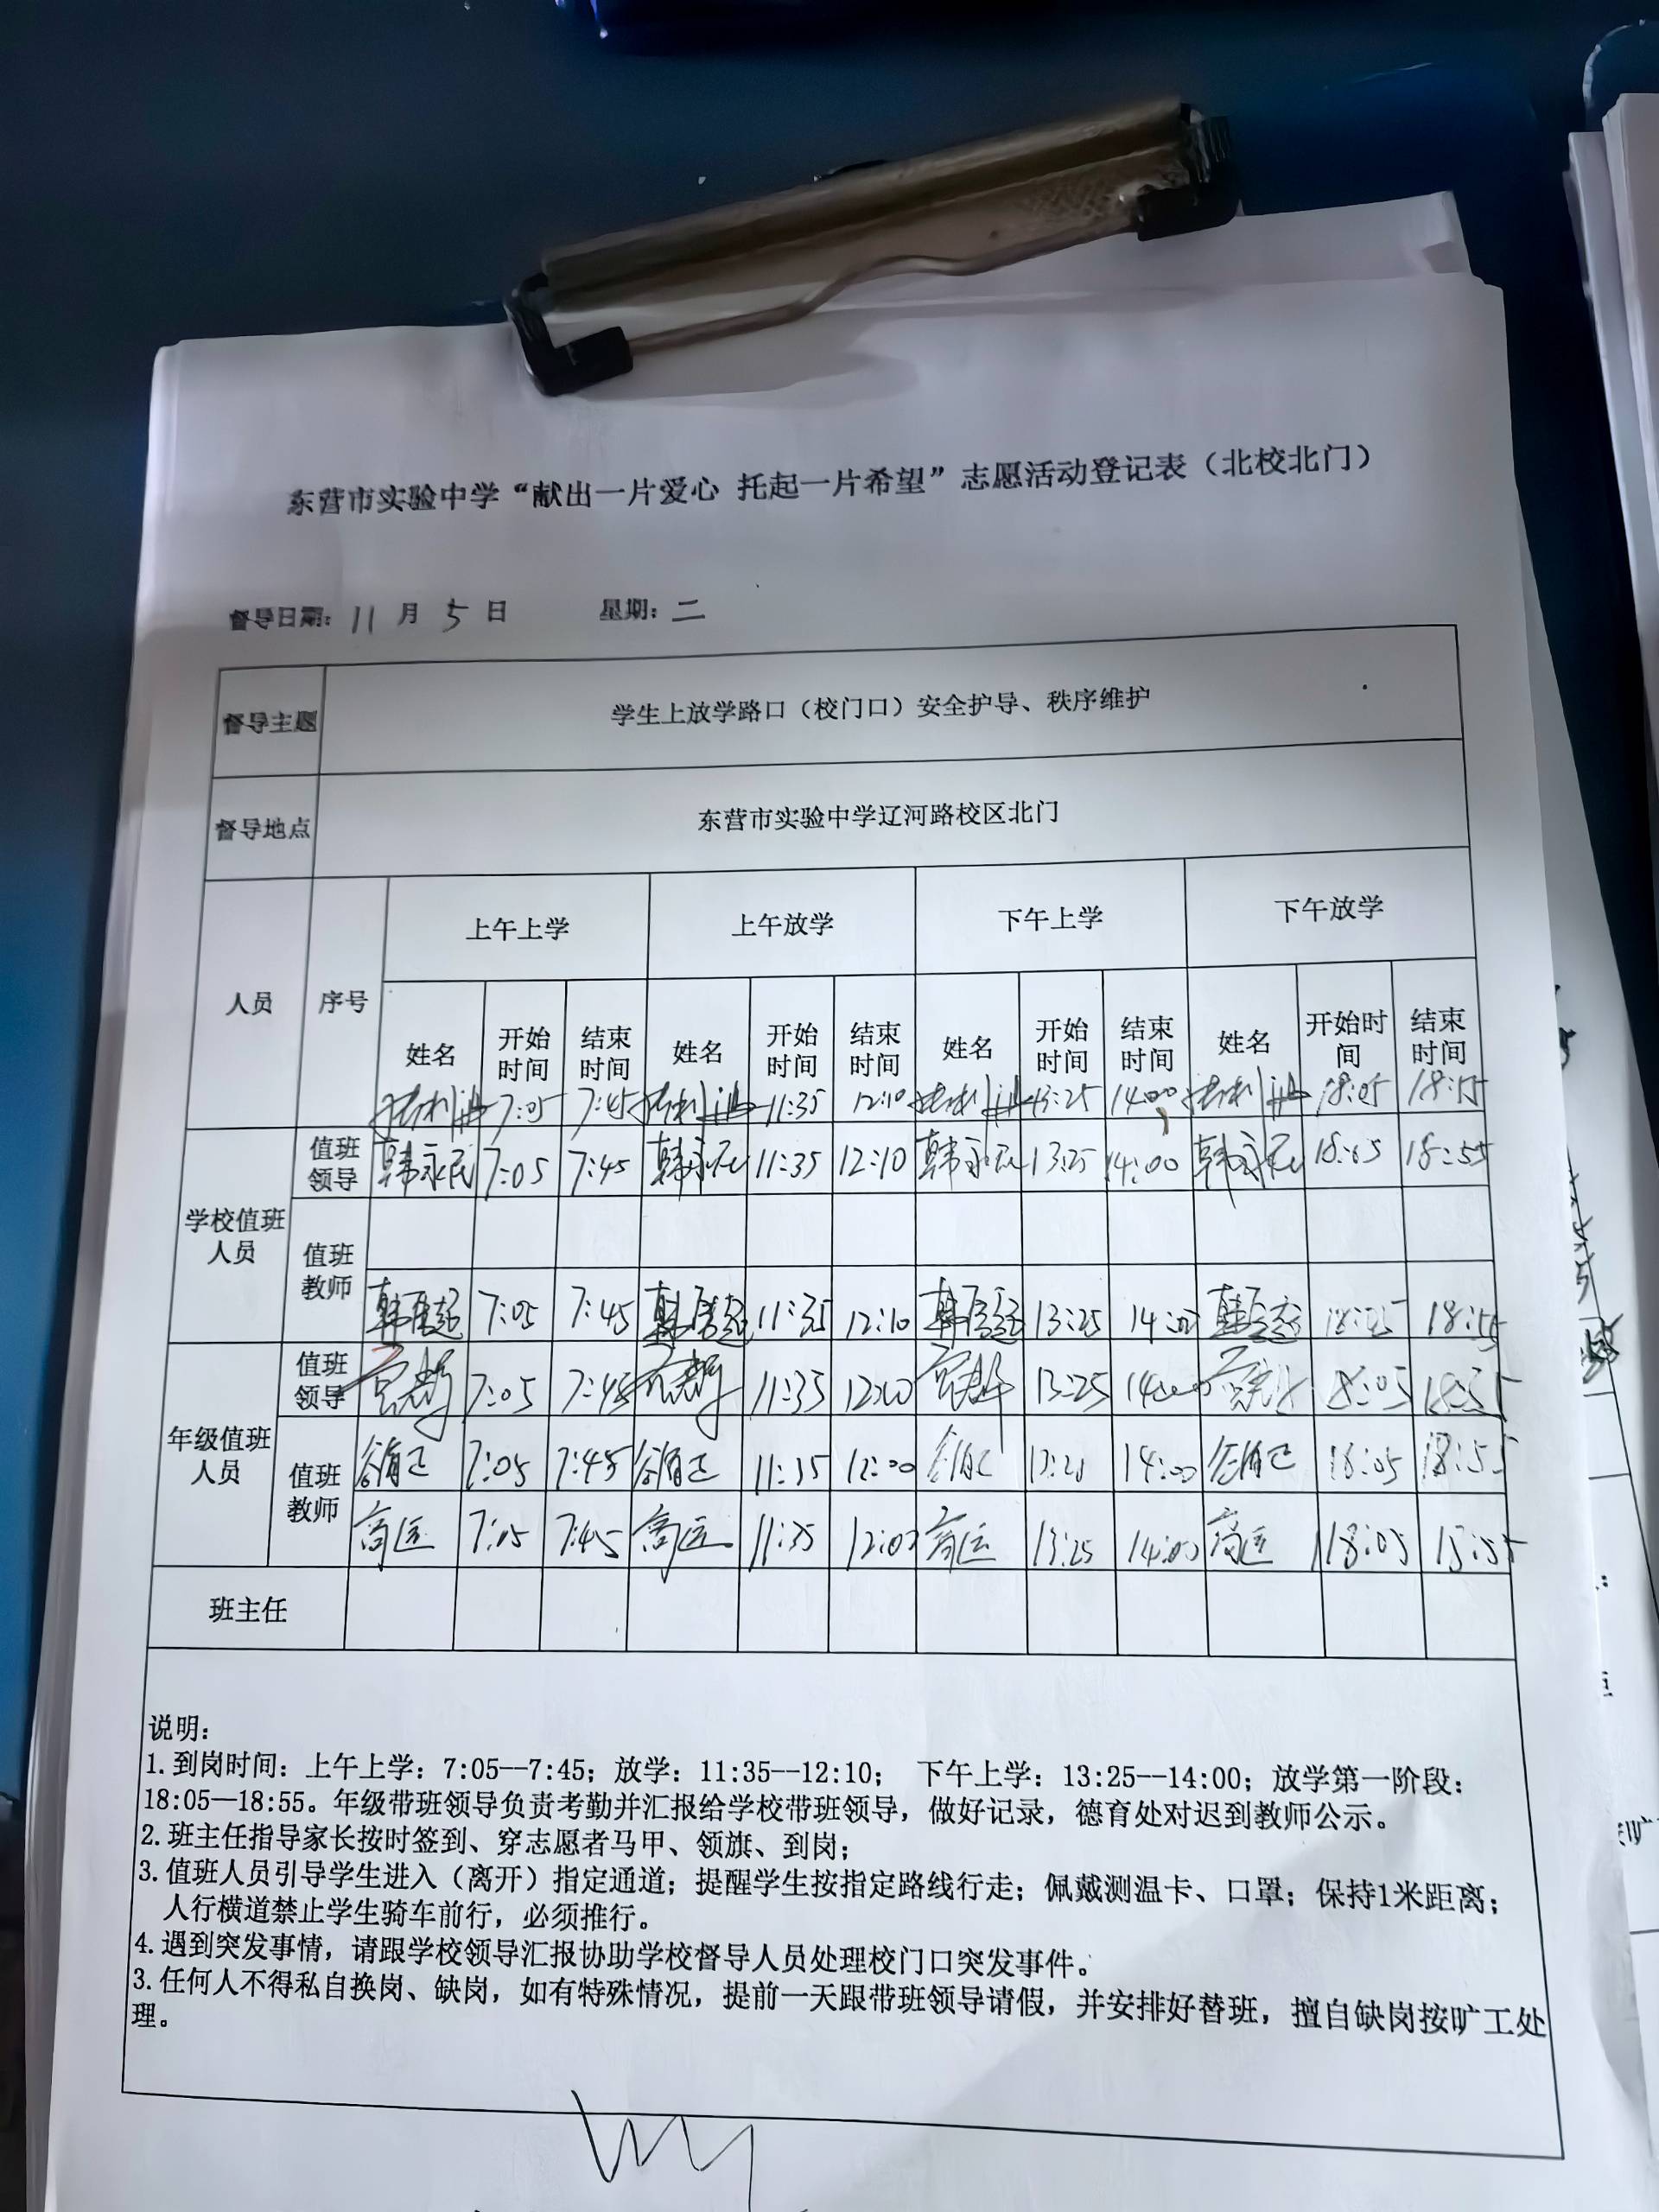 东营市实验中学“献出一片爱心 托起一片希望”志愿活动登记表（北校北门）
督导日期：11月5日 星期：二
督导主题 学生上放学路口（校门口）安全护导、秩序维护
督导地点 东营市实验中学辽河路校区北门
人员 序号 上午上学 上午放学 下午上学 下午放学
姓名 开始时间 结束时间 姓名 开始时间 结束时间 姓名 开始时间 结束时间 姓名 开始时间 结束时间
7:05 7:45 11:35 12:10 13:25 14:00 18:05 18:55
学校值班人员 值班领导 韩永民 7:05 7:45 韩永民 11:35 12:10 韩永民 13:25 14:00 韩永民 18:05 18:55
值班教师
7:05 7:45 11:35 12:10 13:25 14:00 18:05 18:55
年级值班人员 值班领导 7:05 7:45 11:35 13:25 18:05
值班教师 7:05 7:45 11:35 12:00 14:00 18:05 18:55
高匡 7:05 7:45 高匡 11:35 高匡 13:25 14:00 高匡 18:05
班主任
说明：
1.到岗时间：上午上学：7:05--7:45；放学：11:35--12:10； 下午上学：13:25--14:00；放学第一阶段：
18:05—18:55。年级带班领导负责考勤并汇报给学校带班领导，做好记录，德育处对迟到教师公示。
2.班主任指导家长按时签到、穿志愿者马甲、领旗、到岗；
3.值班人员引导学生进入（离开）指定通道；提醒学生按指定路线行走；佩戴测温卡、口罩；保持1米距离；
人行横道禁止学生骑车前行，必须推行。
4.遇到突发事情，请跟学校领导汇报协助学校督导人员处理校门口突发事件。
3.任何人不得私自换岗、缺岗，如有特殊情况，提前一天跟带班领导请假，并安排好替班，擅自缺岗按旷工处
理。